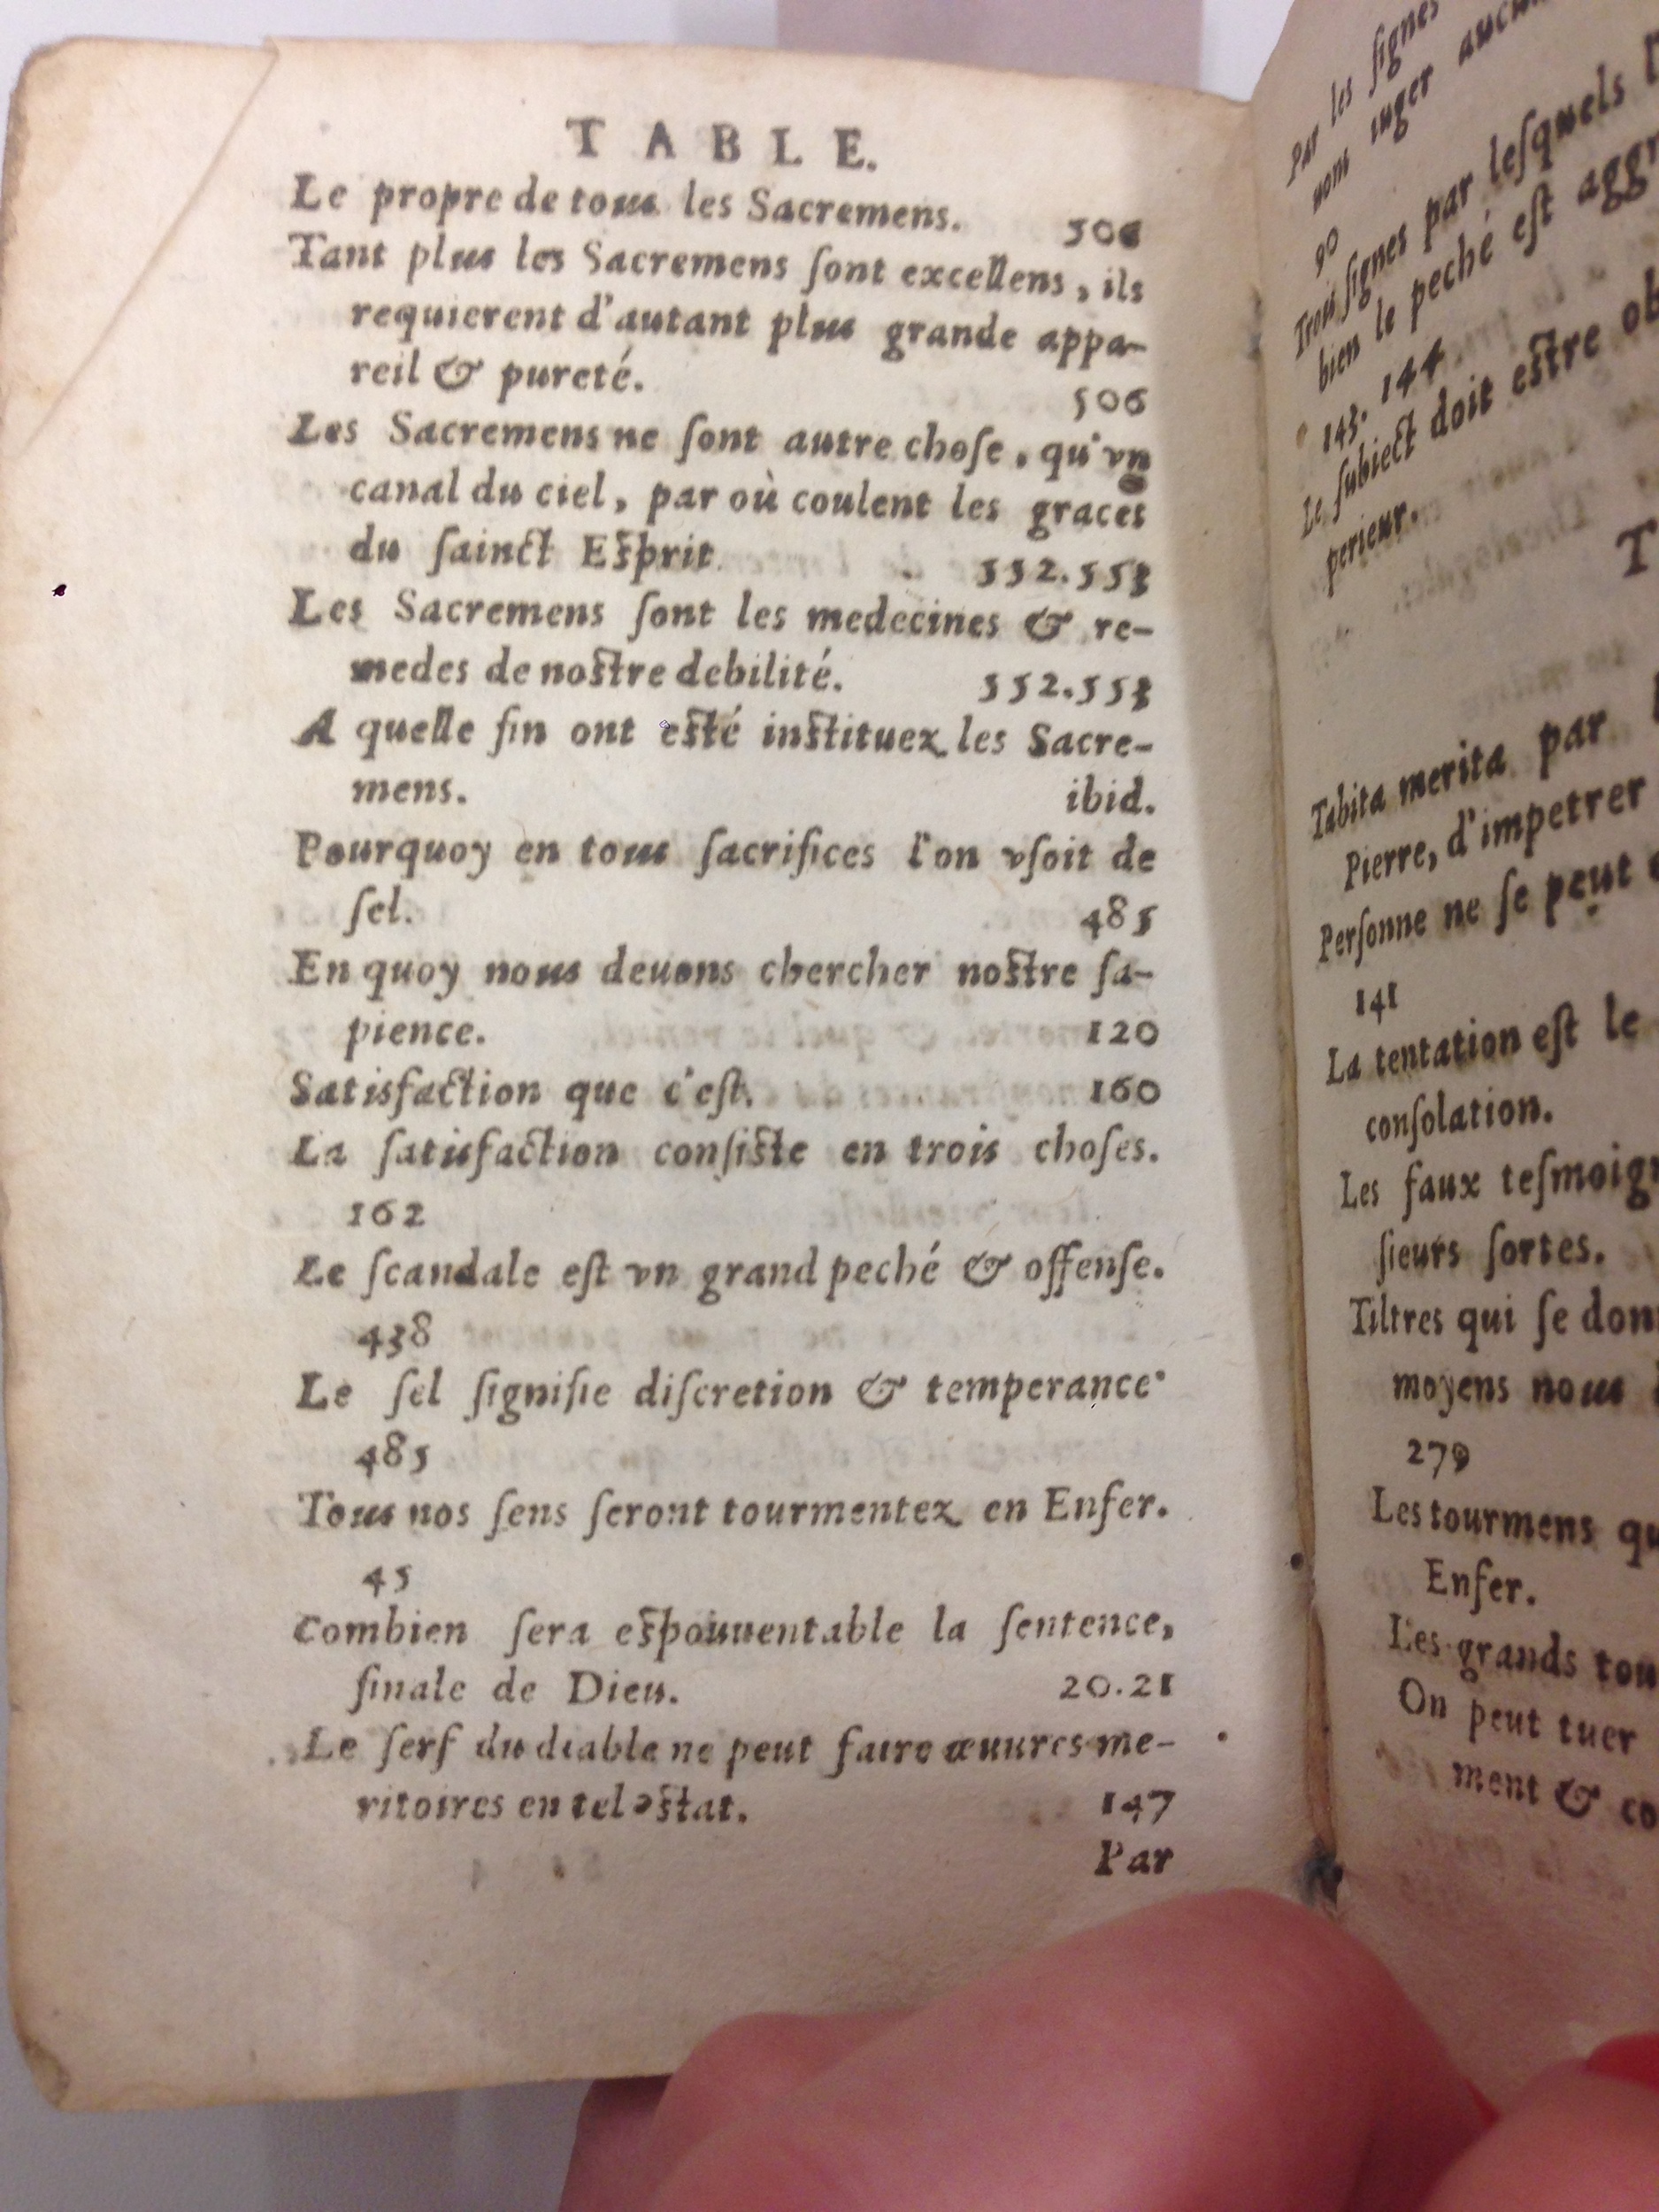 TABLE.
Le propre de tous les Sacremens. 506
Tant plus les Sacremens ſont excellens, ils
requierent d'autant plus grande appa-
reil & pureté. 506
Les Sacremens ne ſont autre choſe, qu'vn
canal du ciel, par où coulent les graces
du ſainct Eſprit 552.553
Les Sacremens ſont les medecines & re-
medes de noſtre debilité. 552.553
A quelle fin ont eſté inſtituez les Sacre-
mens. ibid.
Pourquoy en tous ſacrifices l'on vſoit de
ſel. 485
En quoy nous deuons chercher noſtre ſa-
pience. 120
Satisfaction que c'eſt. 160
La ſatisfaction conſiſte en trois choſes.
162
Le ſcandale eſt vn grand peché & offenſe.
438
Le ſel ſignifie diſcretion & temperance
485
Tous nos ſens ſeront tourmentez en Enfer.
45
Combien ſera eſpouuentable la ſentence,
finale de Dieu. 20.21
Le ſerf du diable ne peut faire œuures me-
ritoires en tel eſtat. 147
Par
Par les ſignes
nous iuger
90
Trois ſignes par leſquels
bien le peché eſt
143. 144
Le ſubiect doit eſtre
perieur.
T
Tabita merita par
Pierre, d'impetrer
Perſonne ne ſe peut
141
La tentation eſt le
conſolation.
Les faux
ſieurs ſortes.
Tiltres qui ſe
moyens nous
279
Les tourmens
Enfer.
Les grands
On peut tuer
ment &